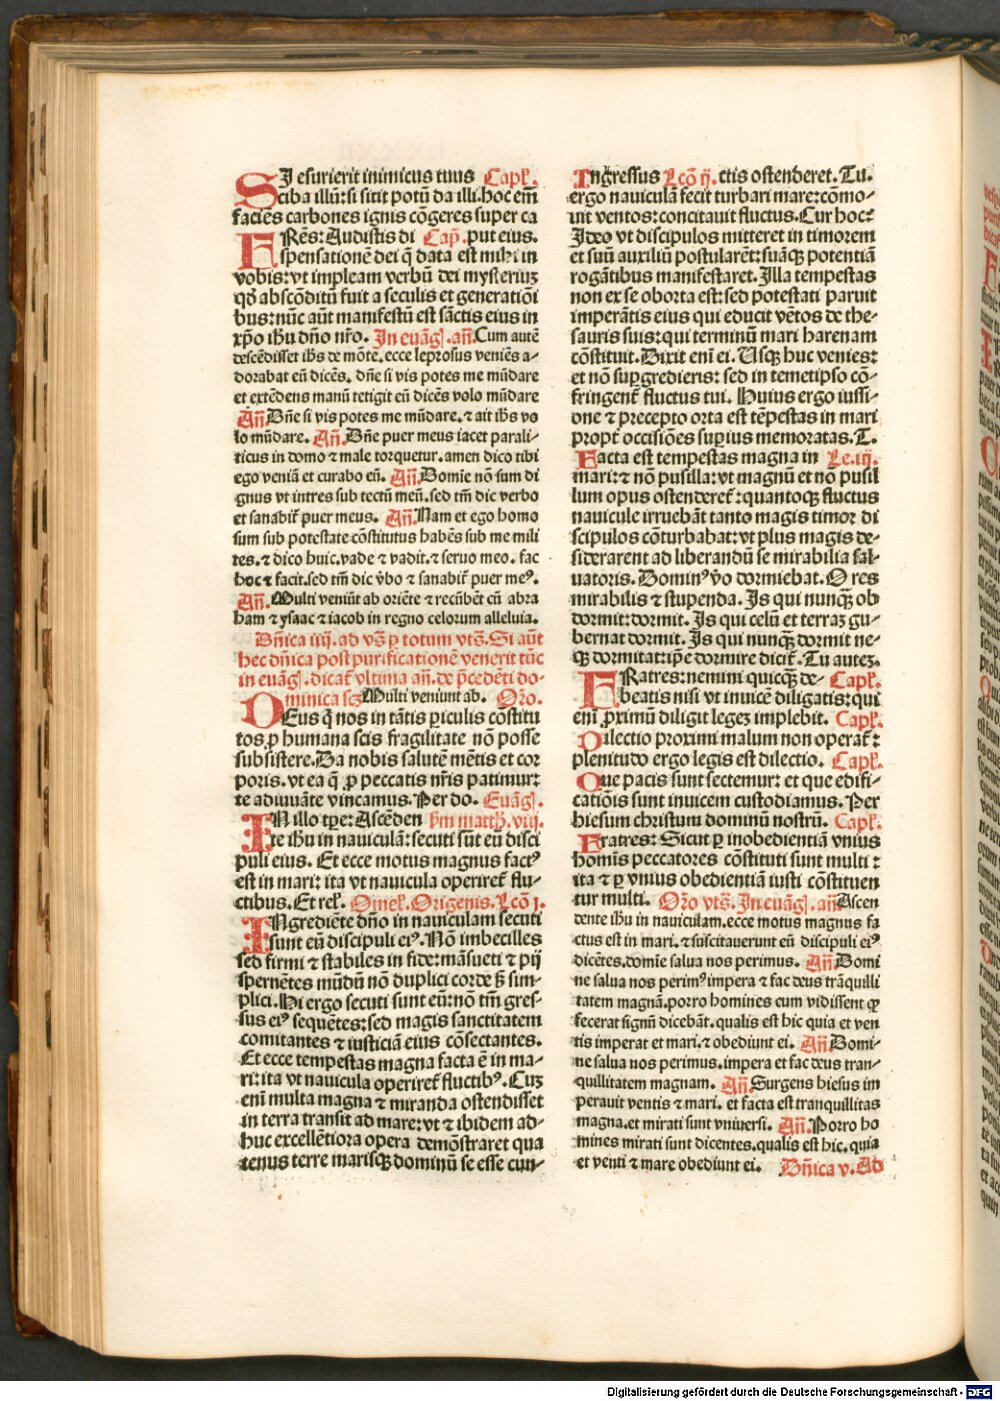 SJ esurierit inimicus tuus Capłm.
ciba illū: si sitit potū da illi. hoc em̄
faciēs carbones ignis cōgeres super ca
FRēs: Audistis di Cap̄. put eius.
spensationē dei q̄ data est mihi in
vobis: vt impleam verbū dei mysteriuʒ
qd̄ abscōditū fuit a seculis et generatiōi
bus: nūc aūt manifestū est sāctis eius in
xp̄o ihu dn̄o nr̄o. In euāgł. an̄. Cum autē
descēdisset ihs de mōte. ecce leprosus veniēs a-
dorabat eū dicēs. dn̄e si vis potes me mūdare
et extēdens manū tetigit eū dicēs volo mūdare
An̄. Dn̄e si vis potes me mūdare. ⁊ ait ihs vo
lo mūdare. An̄. Dn̄e puer meus iacet parali-
ticus in domo ⁊ male torquetur. amen dico tibi
ego veniā et curabo eū. An̄. Domīe nō sum di
gnus vt intres sub tectū meū. sed tm̄ dic verbo
et sanabit̄ puer meus. An̄. Nam et ego homo
sum sub potestate cōstitutus habēs sub me mili
tes. ⁊ dico huic. vade ⁊ vadit. ⁊ seruo meo. fac
hoc ⁊ facit. sed tm̄ dic v̄bo ⁊ sanabit̄ puer meꝰ.
An̄. Multi veniūt ab oriēte ⁊ recūbēt cū abra
ham ⁊ ysaac ⁊ iacob in regno celorum alleluia.
Dn̄ica iiij. ad vs̄ p̲ totum vts̄. Si aūt
hec dn̄ica post purificationē venerit tūc
in euāgł. dicat̄ vltima an̄. de p̄cedēti do-
minica scʒ Multi veniunt ab. Oro̅.
DEus q̄ nos in tātis p̲iculis cōstitu
tos ꝓ humana scis fragilitate nō posse
subsistere. Da nobis salutē mētis et cor
poris. vt ea q̄ ꝓ peccatis nr̄is patimur:
te adiuuāte vincamus. Per do. Euāgł.
IN illo tp̄e: Ascēden s̄m matth̄. viij.
te ihu in nauiculā: secuti sūt eū disci
puli eius. Et ecce motus magnus factꝰ
est in mari: ita vt nauicula operiret̄ flu-
ctibus. Et rel̄. Omeł. Origenis. Lcō j.
INgrediēte dn̄o in nauiculam secuti
sunt eū discipuli eiꝰ. Nō imbecilles
sed firmi ⁊ stabiles in fide: māsueti ⁊ pij
spernētes mūdū nō duplici corde s̄ sim-
plici. Hi ergo secuti sunt eū: nō tm̄ gres-
sus eiꝰ sequētes: sed magis sanctitatem
comitantes ⁊ iusticiā eius cōsectantes.
Et ecce tempestas magna facta ē in ma-
ri: ita vt nauicula operiret̄ fluctibꝰ. Cuʒ
eni̅ multa magna ⁊ miranda ostendisset
in terra transit ad mare: vt ⁊ ibidem ad-
huc excellētiora opera demōstraret qua
tenus terre marisqꝫ dominū se esse cun-
Ingressus Lcō ij. ctis ostenderet. Tu.
ergo nauiculā fecit turbari mare: cōmo-
uit ventos: concitauit fluctus. Cur hoc:
Ideo vt discipulos mitteret in timorem
et suū auxiliū postularēt: suāqꝫ potentiā
rogātibus manifestaret. Illa tempestas
non ex se oborta est: sed potestati paruit
imperātis eius qui educit vētos de the-
sauris suis: qui terminū mari harenam
cōstituit. Dixit eni̅ ei. Usqꝫ huc venies:
et nō sup̲gredieris: sed in temetipso cō-
fringent̄ fluctus tui. Huius ergo iussi-
one ⁊ precepto orta est tēpestas in mari
propt̄ occisiōes sup̲ius memoratas. T.
Facta est tempestas magna in Le. iij.
mari: ⁊ nō pusilla: vt magnū et nō pusil
lum opus ostenderet̄: quantoqꝫ fluctus
nauicule irruebāt tanto magis timor di
scipulos cōturbabat: vt plus magis de-
siderarent ad liberandū se mirabilia sal-
uatoris. Dominꝰ v̄o dormiebat. O res
mirabilis ⁊ stupenda. Is qui nunqꝫ ob
dormit: dormit. Is qui celū et terraʒ gu-
bernat dormit. Is qui nunqꝫ dormit ne-
qꝫ dormitat: ip̄e dormire dicit̄. Tu auteʒ.
FRatres: nemini quicqꝫ de- Capłm.
beatis nisi vt inuicē diligatis: qui
eni̅ ꝓximū diligit legeʒ implebit. Capłm.
Dilectio proximi malum non operat̄:
plenitudo ergo legis est dilectio. Capłm.
Que pacis sunt sectemur: et que edifi-
catiōis sunt inuicem custodiamus. Per
hiesum christum dominū nostrū. Capłm.
Fratres: Sicut p̲ inobedientiā vnius
homis̄ peccatores cōstituti sunt multi:
ita ⁊ p̲ vnius obedientiā iusti cōstituen
tur multi. Oro̅ vts̄. In euāgł. an̄. Ascen
dente ihu in nauiculam. ecce motus magnus fa
ctus est in mari. ⁊ suscitauerunt eū discipuli eiꝰ
dicētes. domīe salua nos perimus. An̄. Domi
ne salua nos perimꝰ impera ⁊ fac deus trāquilli
tatem magnā. porro homines cum vidissent qd̄
fecerat signū dicebāt. qualis est hic quia et ven
tis imperat et mari. ⁊ obediunt ei. An̄. Domi-
ne salua nos perimus. impera et fac deus tran-
quillitatem magnam. An̄. Surgens hiesus im
perauit ventis ⁊ mari. et facta est tranquillitas
magna. et mirati sunt vniuersi. An̄. Porro ho
mines mirati sunt dicentes. qualis est hic. quia
et venti ⁊ mare obediunt ei. Dn̄ica v. Ad
Digitalisierung gefördert durch die Deutsche Forschungsgemeinschaft - DFG